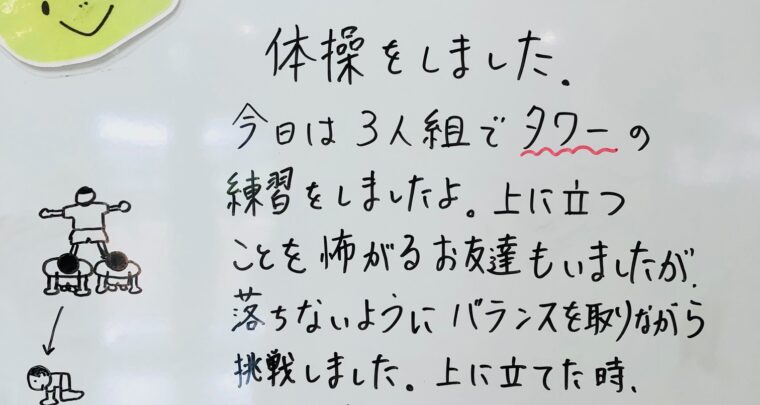 体操をしました.
今日は3人組でタワーの
練習をしましたよ。上に立つ
ことを怖がるお友達もいましたが、
落ちないようにバランスを取りながら
挑戦しました。上に立てた時、